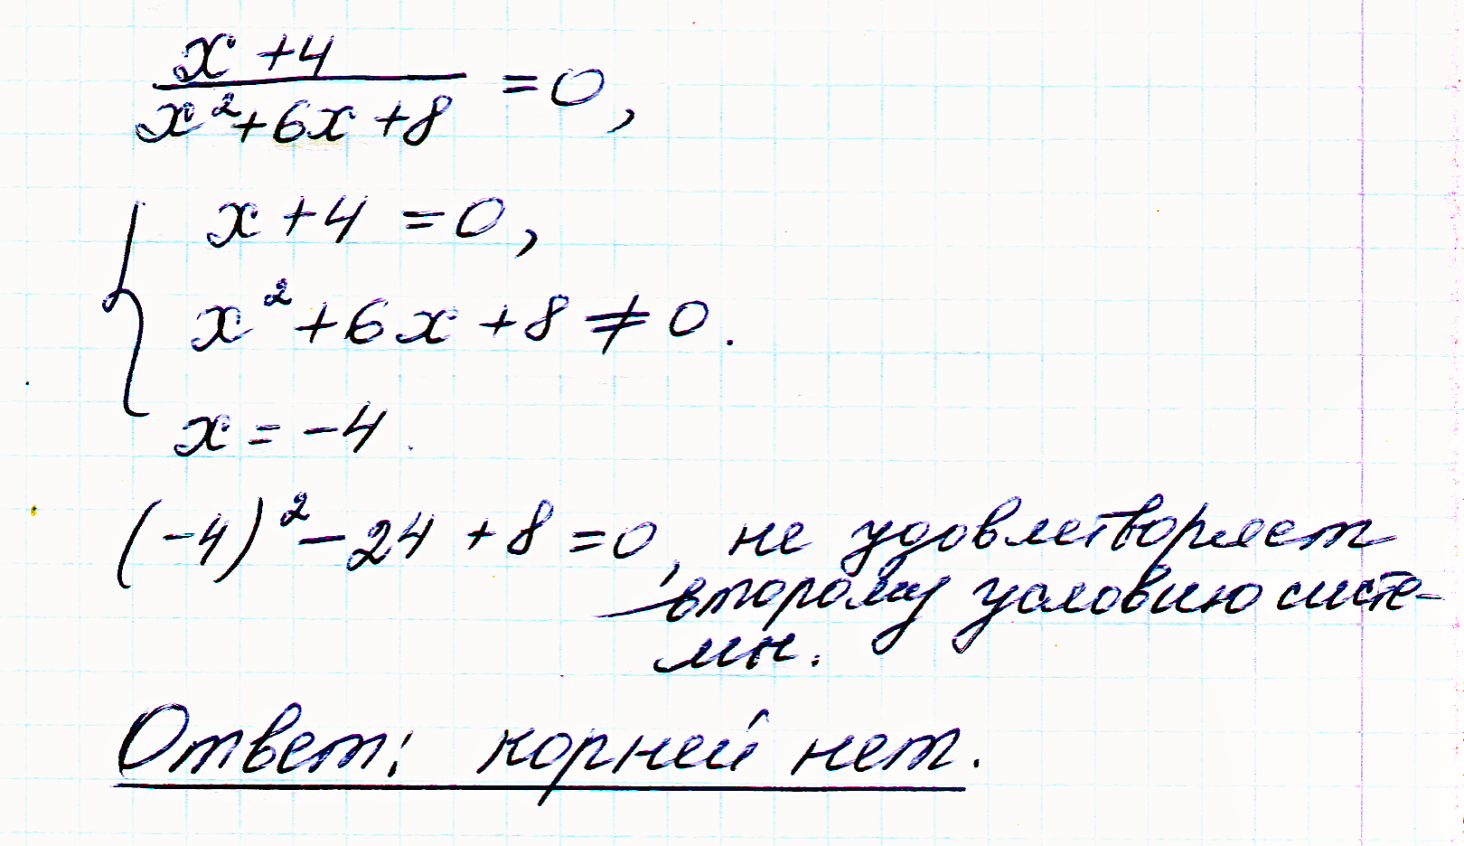 x + 4
x² + 6x + 8 = 0,
x + 4 = 0,
x² + 6x + 8 ≠ 0.
x = -4.
(-4)² - 24 + 8 = 0, не удовлетворяет
второму условию систе-
мы.
Ответ: корней нет.